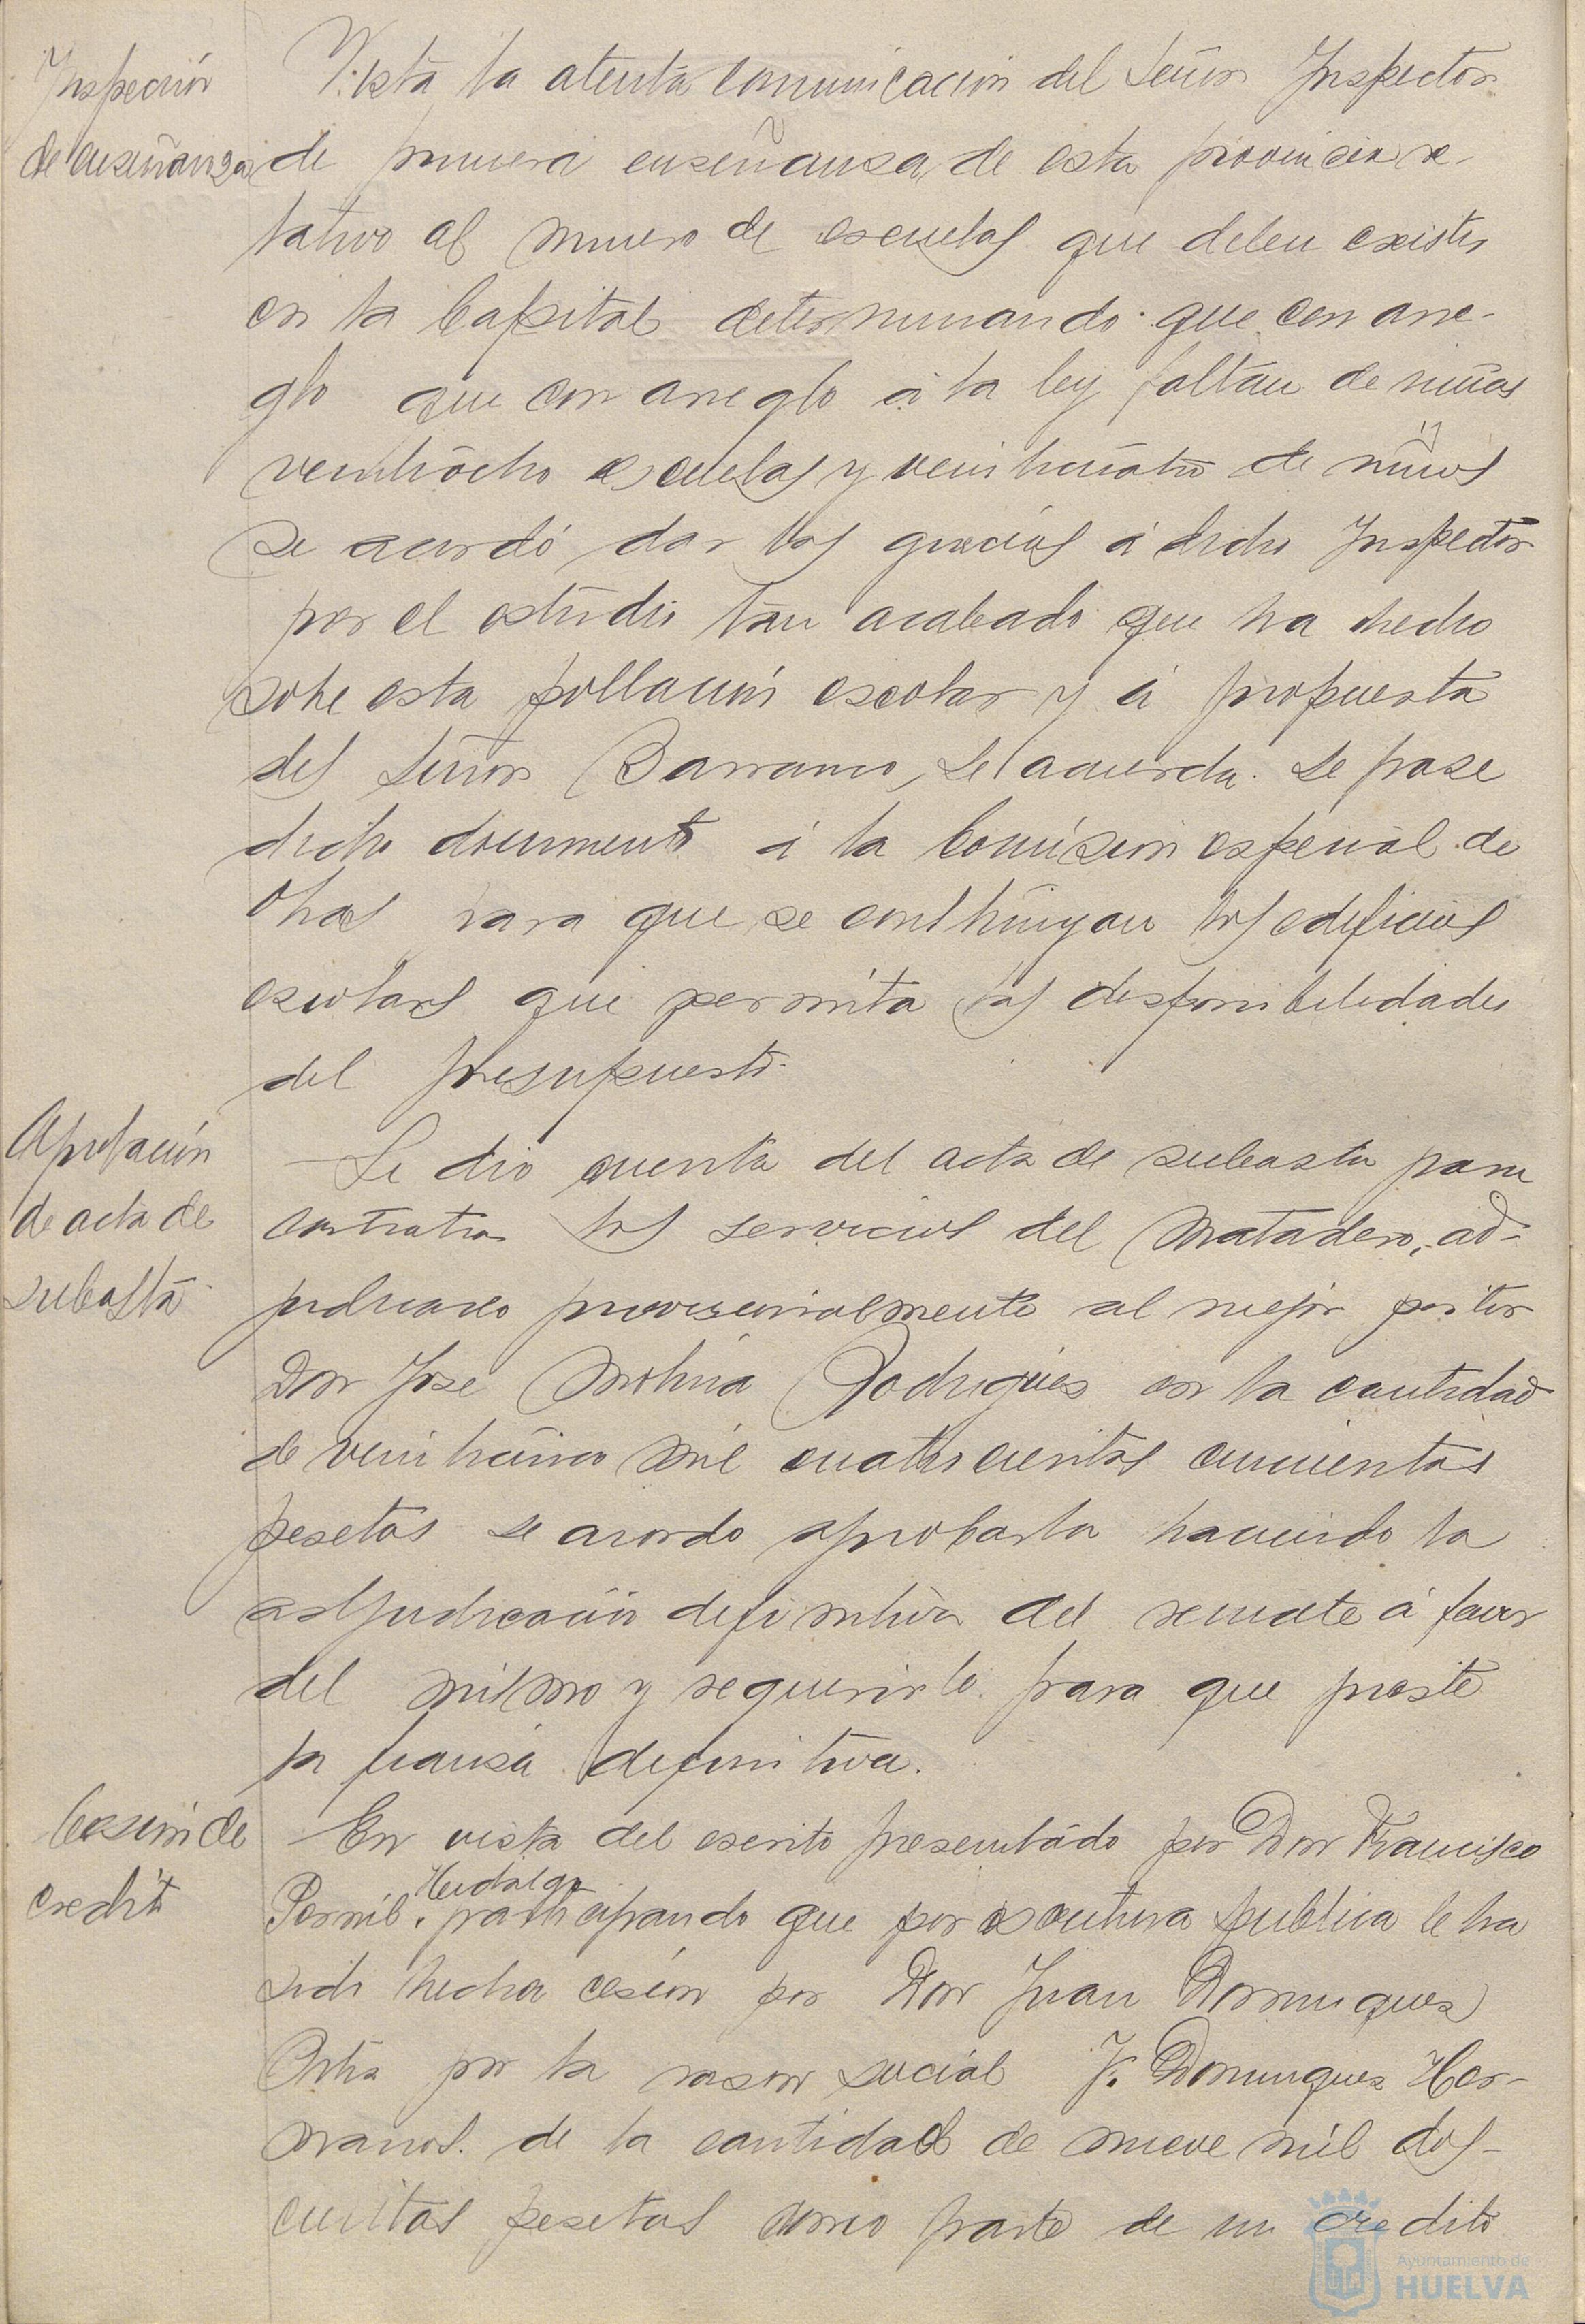 Inspección
de enseñanza
Vista la atenta comunicación del Señor Inspector
de primera enseñansa de esta provincia re-
lativo al numero de escuelas que deben existir
en la Capital determinando que con arre-
glo que con arreglo á la ley faltan de niñas
veintiocho escuelas y veinticuatro de niños
se acordó dar las gracias á dicho Inspector
por el estudio tan acabado que ha hecho
sobre esta poblacion escolar y á propuesta
del Señor Barranco, se acuerda se pase
dicho documento á la Comision especial de
Obras para que se constituyan los edificios
escolares que permita las disponibilidades
del presupuesto.
Aprobación
de acta de
subasta
Se dio cuenta del acta de subasta para
contratar los servicios del Matadero, ad-
judicado provisionalmente al mejor postor
Don Jose Molina Rodrigues en la cantidad
de veinticinco mil cuatrocientas cincuenta
pesetas se acordo aprobarla haciendo la
adjudicación definitiva del remate á favor
del mismo y requerirlo para que preste
la fiansa definitiva.
Cesion de
credito
En vista del escrito presentado por Don Francisco
Hidalgo
Pernil participando que por escritura publica le ha
sido hecha cesión por Don Juan Domingues
Ortia por la rason social J. Domingues Her-
manos. de la cantidad de nueve mil dos-
cientas pesetas como parte de un credito
Ayuntamiento de
HUELVA